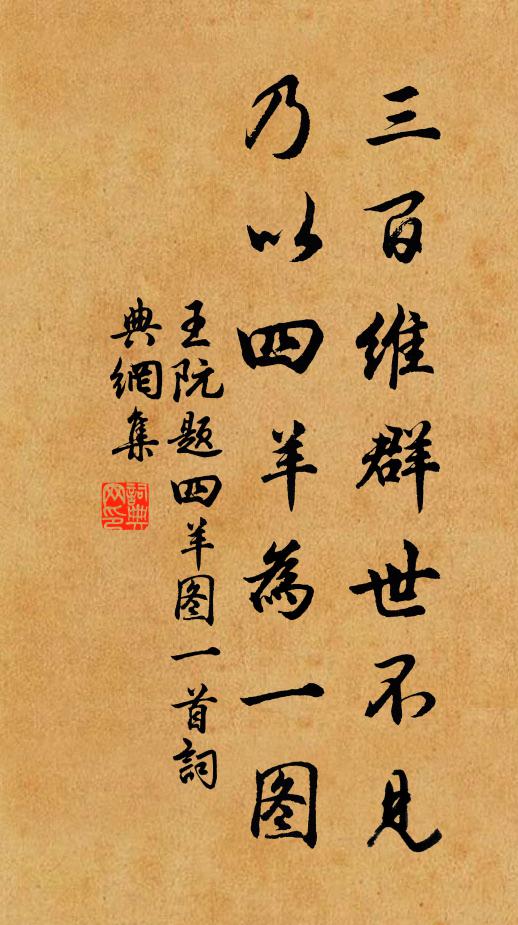 三百维群世不见
乃以四羊為一图
王阮题四羊图一首詞
典網集
詞典網印